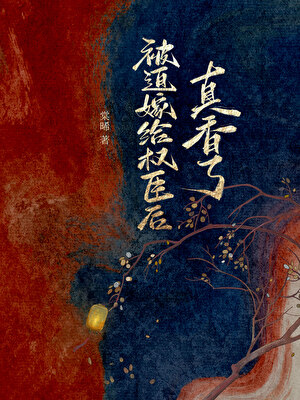 被迫嫁给权臣后
真香了
棠晞 著